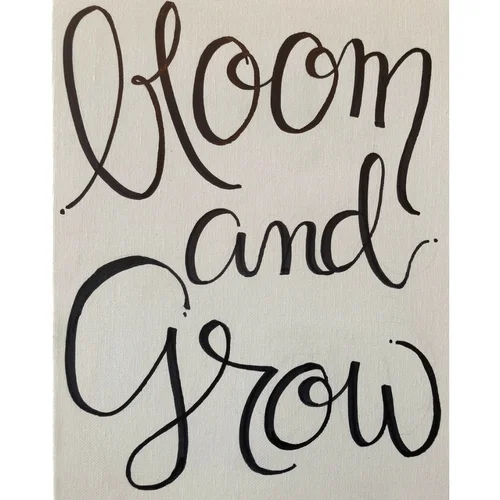 bloom
and
Grow